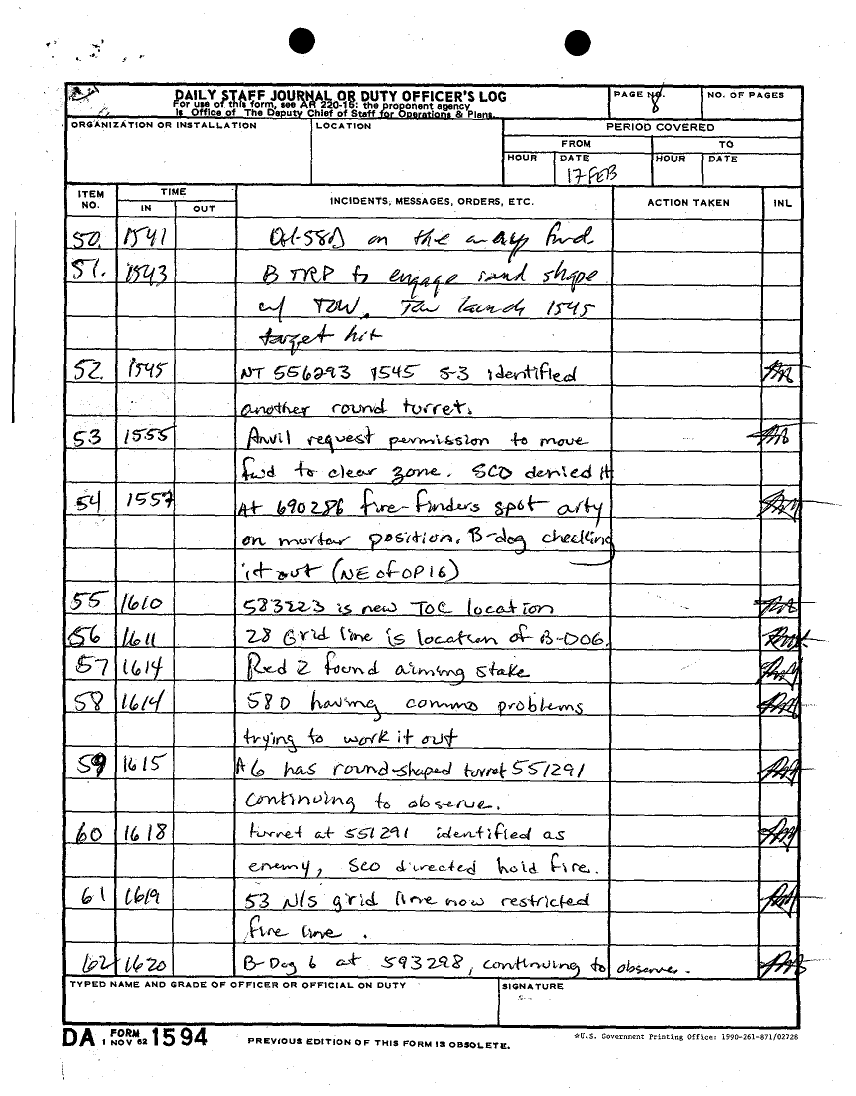 DAILY STAFF JOURNAL OR DUTY OFFICER'S LOG
For use of this form, see AR 220-15; the proponent agency
is Office of The Deputy Chief of Staff for Operations & Plans.
PAGE NO. 8
NO. OF PAGES
ORGANIZATION OR INSTALLATION
LOCATION
PERIOD COVERED
FROM
TO
HOUR
DATE
17 FEB
HOUR
DATE
ITEM NO.
TIME
IN
OUT
INCIDENTS, MESSAGES, ORDERS, ETC.
ACTION TAKEN
INL
50. 1541 OH-58D on the way fwd.
51. 1543 B TRP to engage sand shape
w/ TOW. Tow launch 1545
target hit
52. 1545 NT 556293 1545 S-3 identified
another round turret.
53 1555 Anvil request permission to move
fwd to clear zone. SCO denied it
54 1557 At 690286 fire-finders spot arty
on mortar position. B-dog checking
it out (NE of OP16)
55 1610 583223 is new TOC location
56 1611 28 Grid line is location of B-DOG.
57 1614 Red 2 found aiming stake
58 1614 58 D having commo problems
trying to work it out
59 1615 A6 has round-shaped turret 551291
continuing to observe.
60 1618 turret at 551291 identified as
enemy, SCO directed hold fire.
61 1619 53 N/S grid line now restricted
fire line.
62 1620 B-Dog 6 at 593298, continuing to observe.
TYPED NAME AND GRADE OF OFFICER OR OFFICIAL ON DUTY
SIGNATURE
DA FORM 1 NOV 62 1594
PREVIOUS EDITION OF THIS FORM IS OBSOLETE.
*U.S. Government Printing Office: 1990-261-871/02728